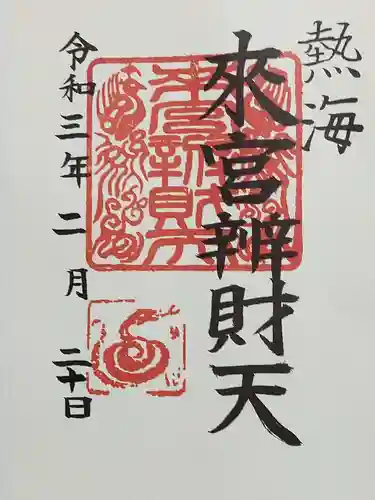 熱海
來宮辨財天
令和三年二月二十日